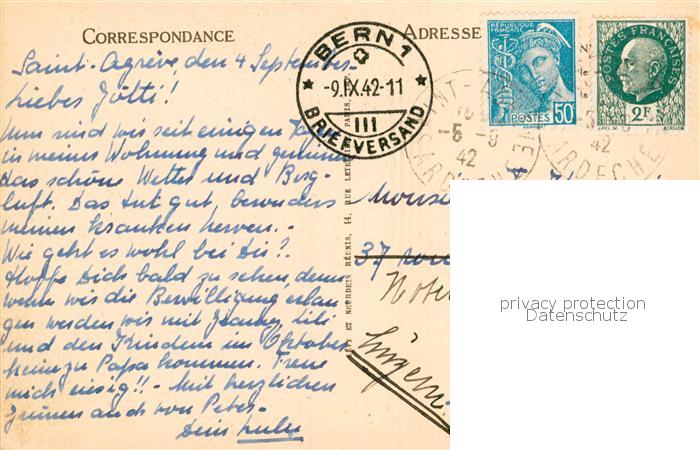 CORRESPONDANCE
ADRESSE
Saint-Agrève, den 4 September.-
Liebes Götti!
Nun sind wir seit einigen Tagen
in meiner Wohnung und geniessen
das schöne Wetter und Berg-
luft. Das tut gut, besonders
meinen kranken Nerven.-
Wie geht es wohl bei Dir?
Hoffe Dich bald zu sehen, denn
wenn wir die Bewilligung erlan-
gen werden wir mit Lili
und den Kindern im Oktober
heim zu Papa kommen. Freue
mich riesig!! - Mit herzlichen
Grüssen auch von Peter-
Dein
BERN 1
-9.IX.42-11
III
BRIEFVERSAND
RÉPUBLIQUE FRANÇAISE
POSTES 50
POSTES FRANÇAISES
2F
-5 -9
42
ARDECHE
42
ARDECHE
ET NEURDEIN RÉUNIS, 14, RUE PARIS.
37 rue
Luzern
privacy protection
Datenschutz